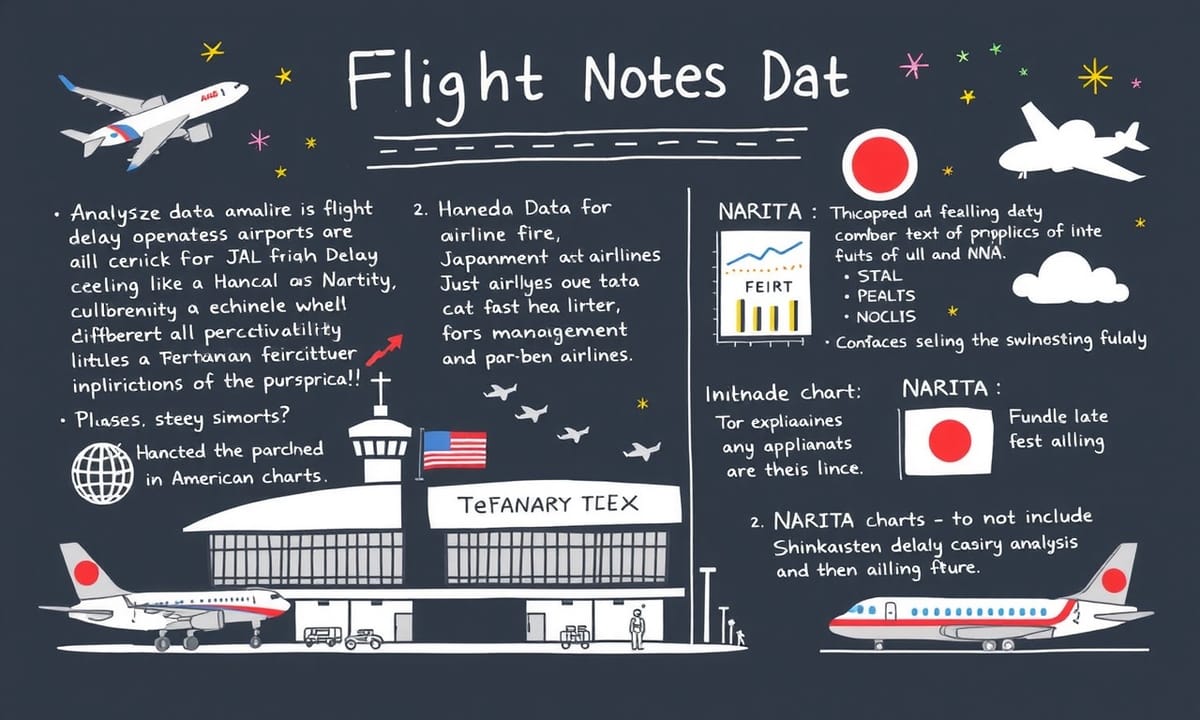 Flight Notes Dat
• Analysze data amalire is flight
delay openatess airports are
aill cerrick for JAL friah Delay
ceeling like a Hancal as Nartity,
cullbrenity a echinele whell
diffberert all percctivatility
littles a Fertanan feircittuer
inplirictions of the pursprica!!
• Pluases, steey simorts?
Hancted the parclned
in American charts.
2. Haneda Data for
airline fire,
Japanment act airllines
Just airllyes oue tata
cat fast hea lirter,
fors management
and par-ben airlines.
TeFANARY TLEX
NARITA : Thicapped ad fealling daty
comber text of prppliccs of inte
fuits of ull and NNA.
• STAL
• PEALTS
• NOCLIS
FEIRT
• Confaces seling the swinosting fulaly
Initnade chart:
Tor expliaaines
any applianats
are theis lince.
NARITA :
Fundle late
fest ailling
2. NARITA charts – to not include
Shinkaisten delaly casiry analysis
and then ailling fture.